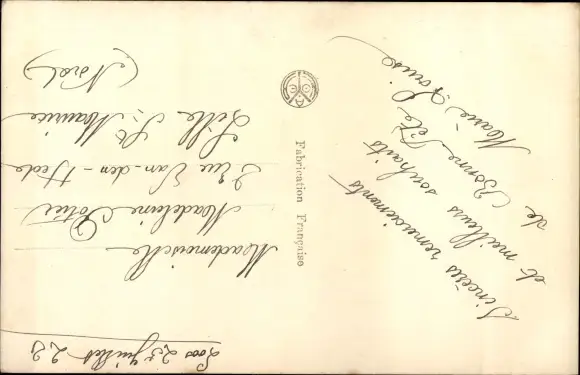 Loos 25 Juillet 22
Mademoiselle
Madeleine Potié
2 Rue Van-den-Hede
Lille St Maurice
(Nord)
Fabrication Française
Sincères remerciements
et meilleurs souhaits
de Bonne Fête
Marie Louise